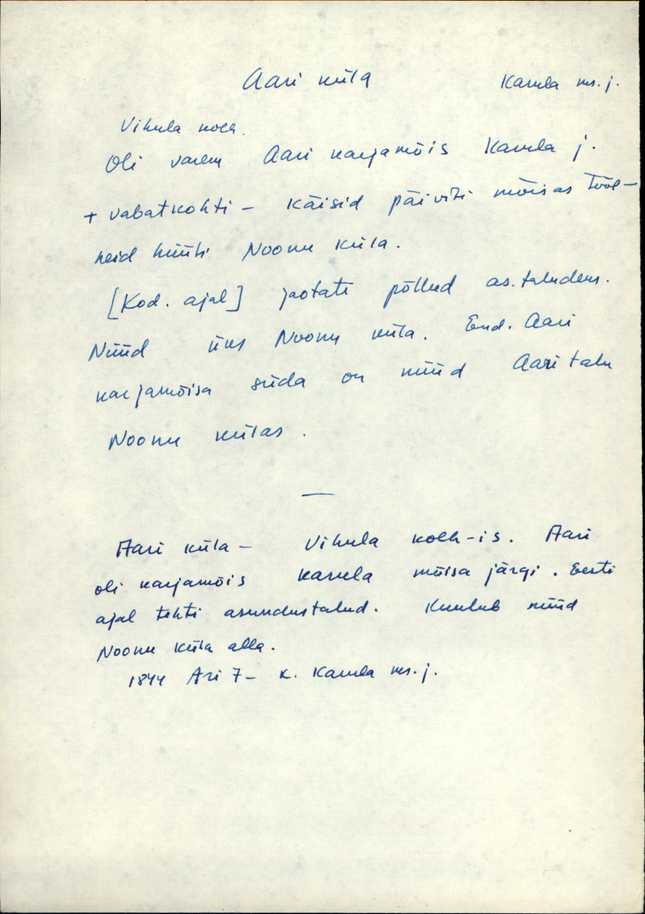 Aari küla Karula ms. j.
Vihula kolh.
Oli varem Aari karjamõis Karula j.
+ vabatkohti – käisid päiviti mõisas tööl –
neid hüüti Noonu küla.
[Kod. ajal] jaotati põllud as. taludeks.
Nüüd üks Noonu küla. End. Aari
karjamõisa süda on nüüd Aari talu
Noonu külas.
—
Aari küla – Vihula kolh-is. Aari
oli karjamõis Karula mõisa järgi. Eesti
ajal tehti asundustalud. Kuulub nüüd
Noonu küla alla.
1844 Ari 7 – k. Karula ms. j.